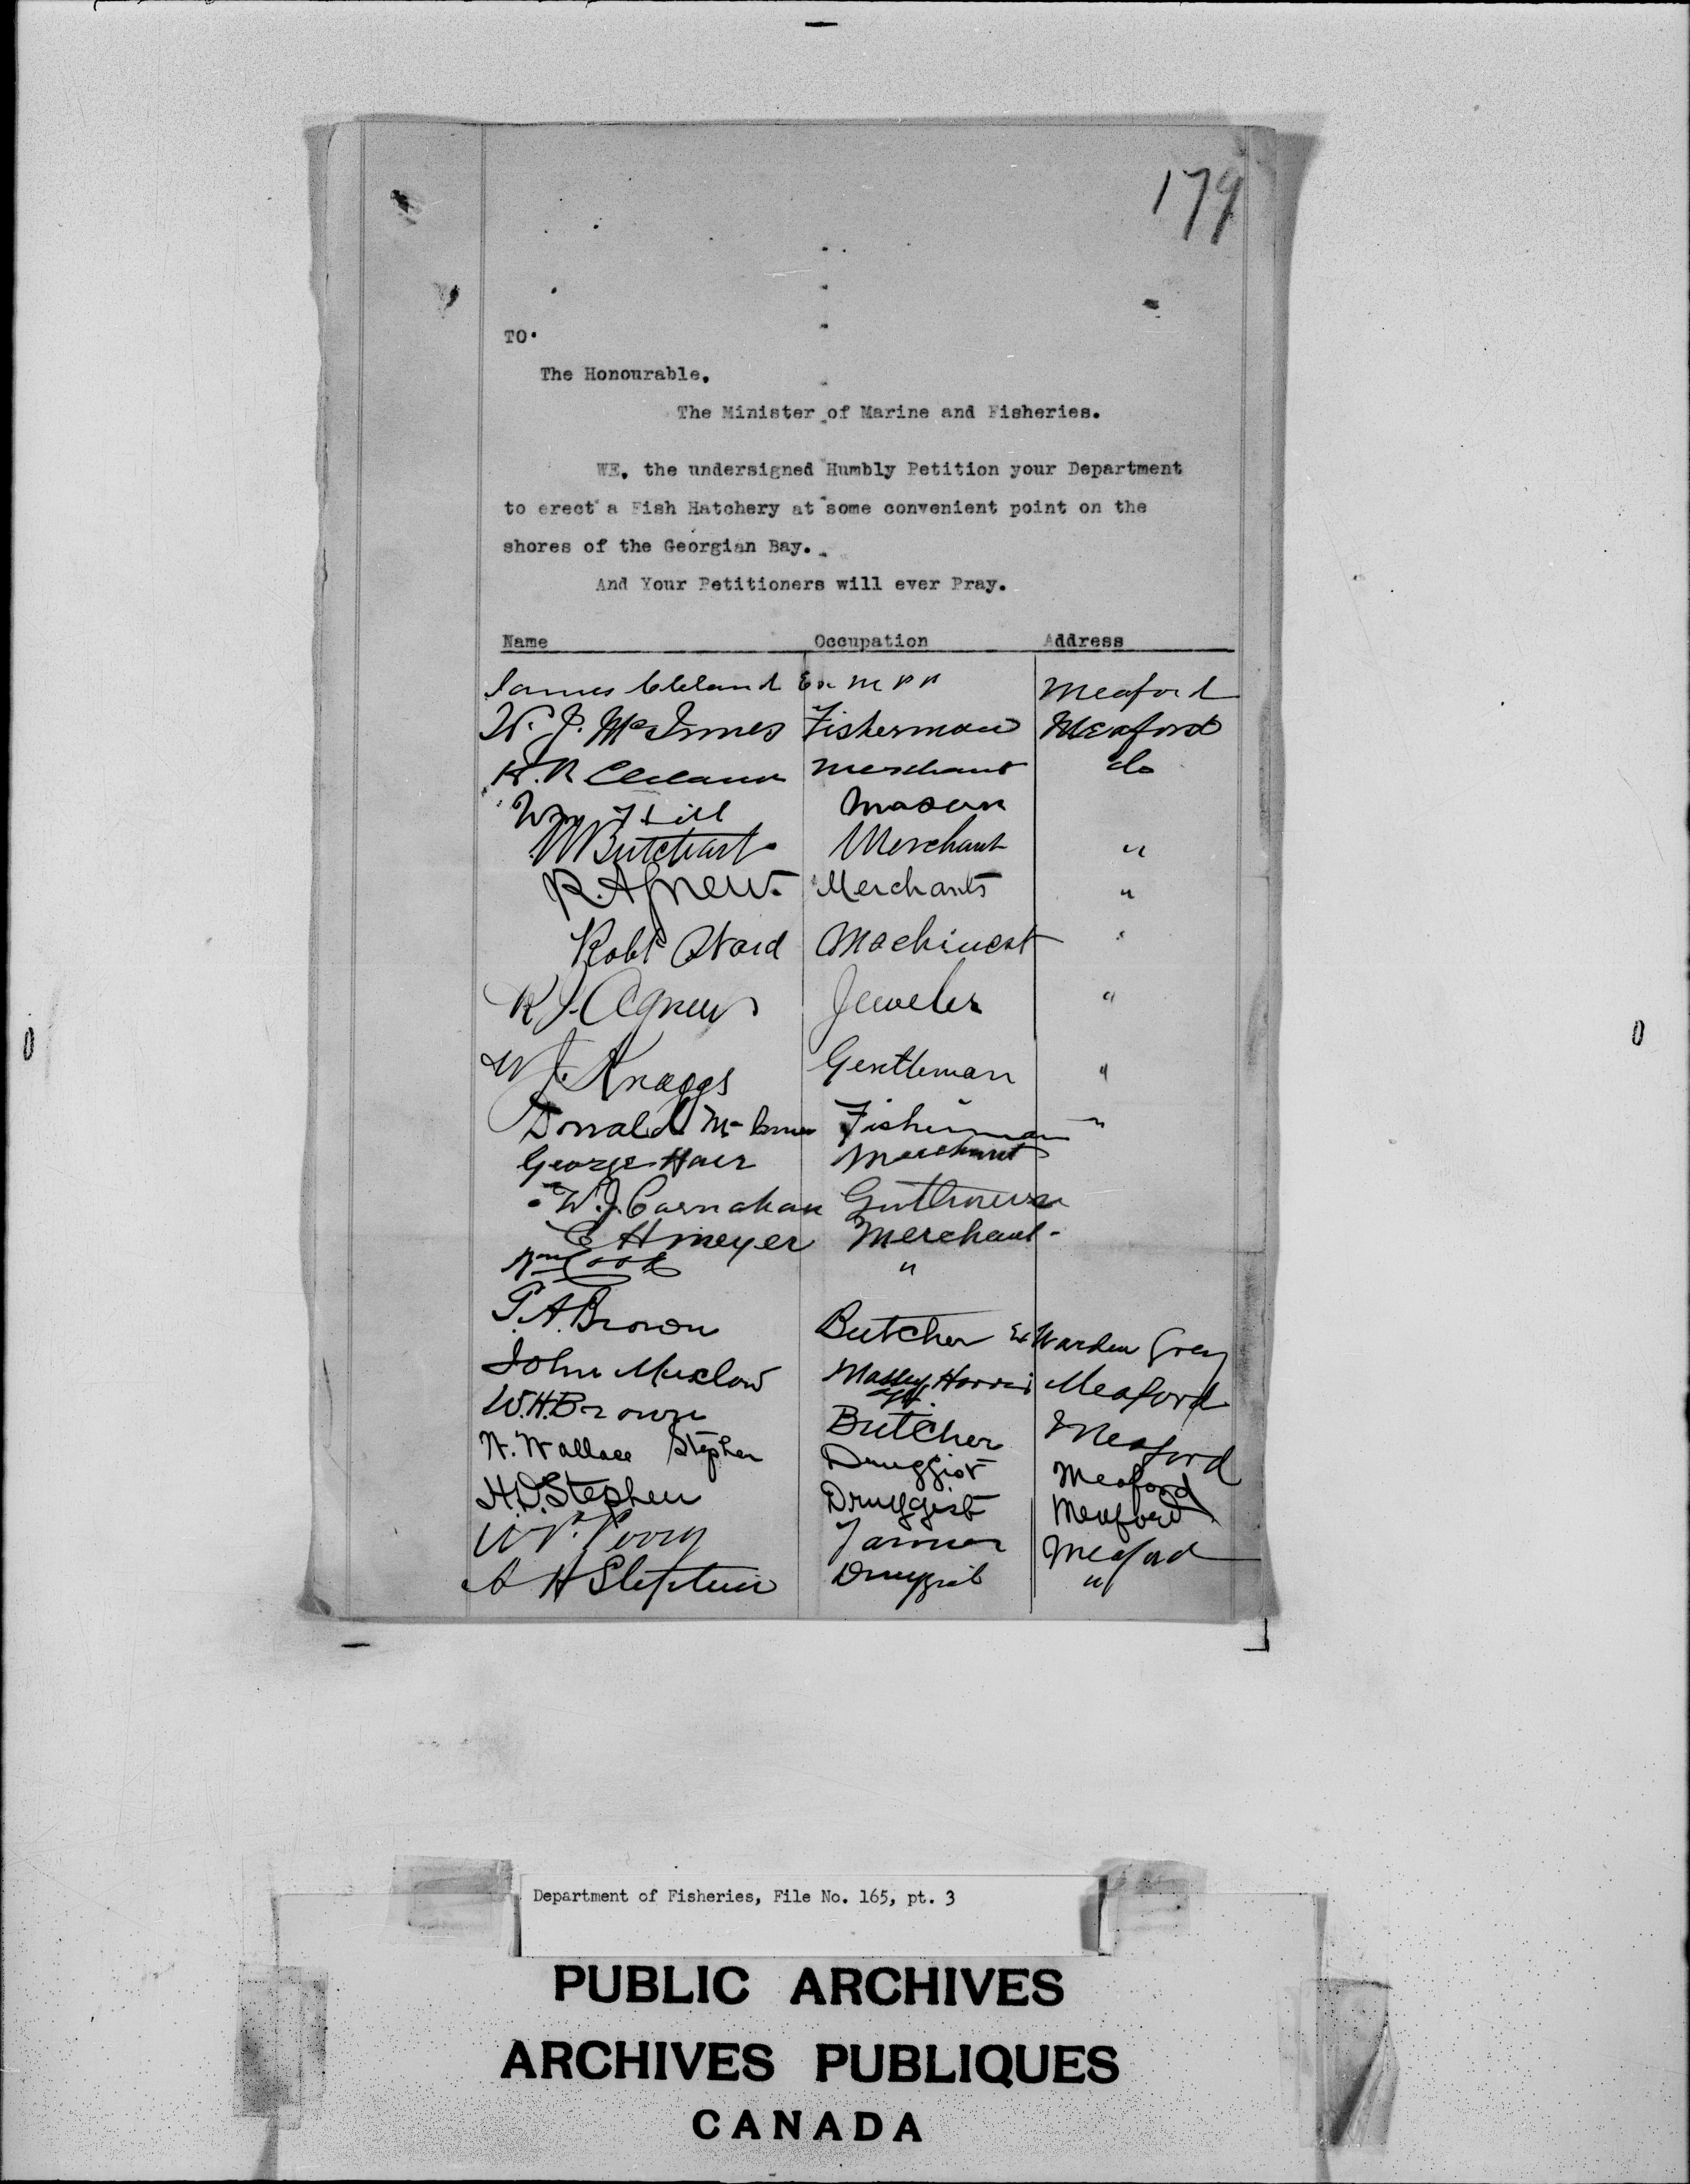 179
TO.
The Honourable,
The Minister of Marine and Fisheries.
WE, the undersigned Humbly Petition your Department
to erect a Fish Hatchery at some convenient point on the
shores of the Georgian Bay.
And Your Petitioners will ever Pray.
Name Occupation Address
James Cleland Ex M P P Meaford
W. J. McInnes Fisherman Meaford
H. R Cleland Merchant do
Wm Hill Mason
Butchart Merchant "
R. Agnew. Merchants "
Robt Ward Machinest "
R J. Agnew Jeweler "
W J. Knaggs Gentleman "
Donald McInnes Fisherman "
George Hair Merchant
W. J. Carnahan
E H meyer Merchant -
Wm Cook "
T. A. Brown Butcher Ex Warden Grey
John Muxlow Massey Harris Agt. Meaford
W. H. Brown Butcher Meaford
W. Wallace Stephen Druggist Meaford
H. D. Stephen Druggist Meaford
Perry Meaford
A H Stephen Druggist "
Department of Fisheries, File No. 165, pt. 3
PUBLIC ARCHIVES
ARCHIVES PUBLIQUES
CANADA